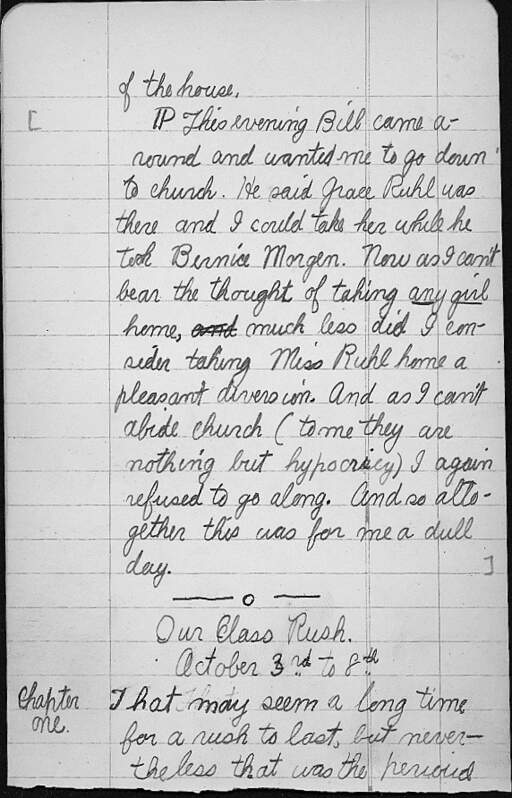 of the house.
[ IP This evening Bill came a-
round and wanted me to go down
to church. He said Grace Ruhl was
there and I could take her while he
took Bernice Morgen. Now as I can't
bear the thought of taking any girl
home, and much less did I con-
sider taking Miss Ruhl home a
pleasant diversion. And as I can't
abide church (to me they are
nothing but hypocricy) I again
refused to go along. And so alto-
gether this was for me a dull
day. ]
— o —
Our Class Rush.
October 3rd to 8th
Chapter
one.
That may seem a long time
for a rush to last, but never-
theless that was the period